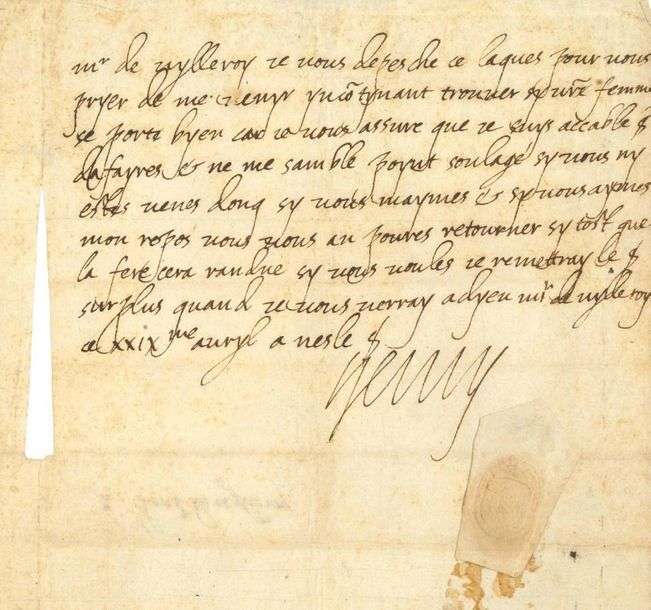 mr de vylleroy ie vous depesche ce laques pour vous
pryer de me venyr yncõtynant trouver sy vr̃e femme
se porte byen car ie vous assure que ie suys accable
dafayres & ne me samble poynt soulage sy vous ny
estes venes donq sy vous maymes & sy vous aymes
mon repos vous vous an poures retourner sy tost que
la fere cera randue sy vous voules ie remettray le
surplus quand ie vous verray adyeu mr de vylleroy
ce XXIXme avryl a nesle
Henry